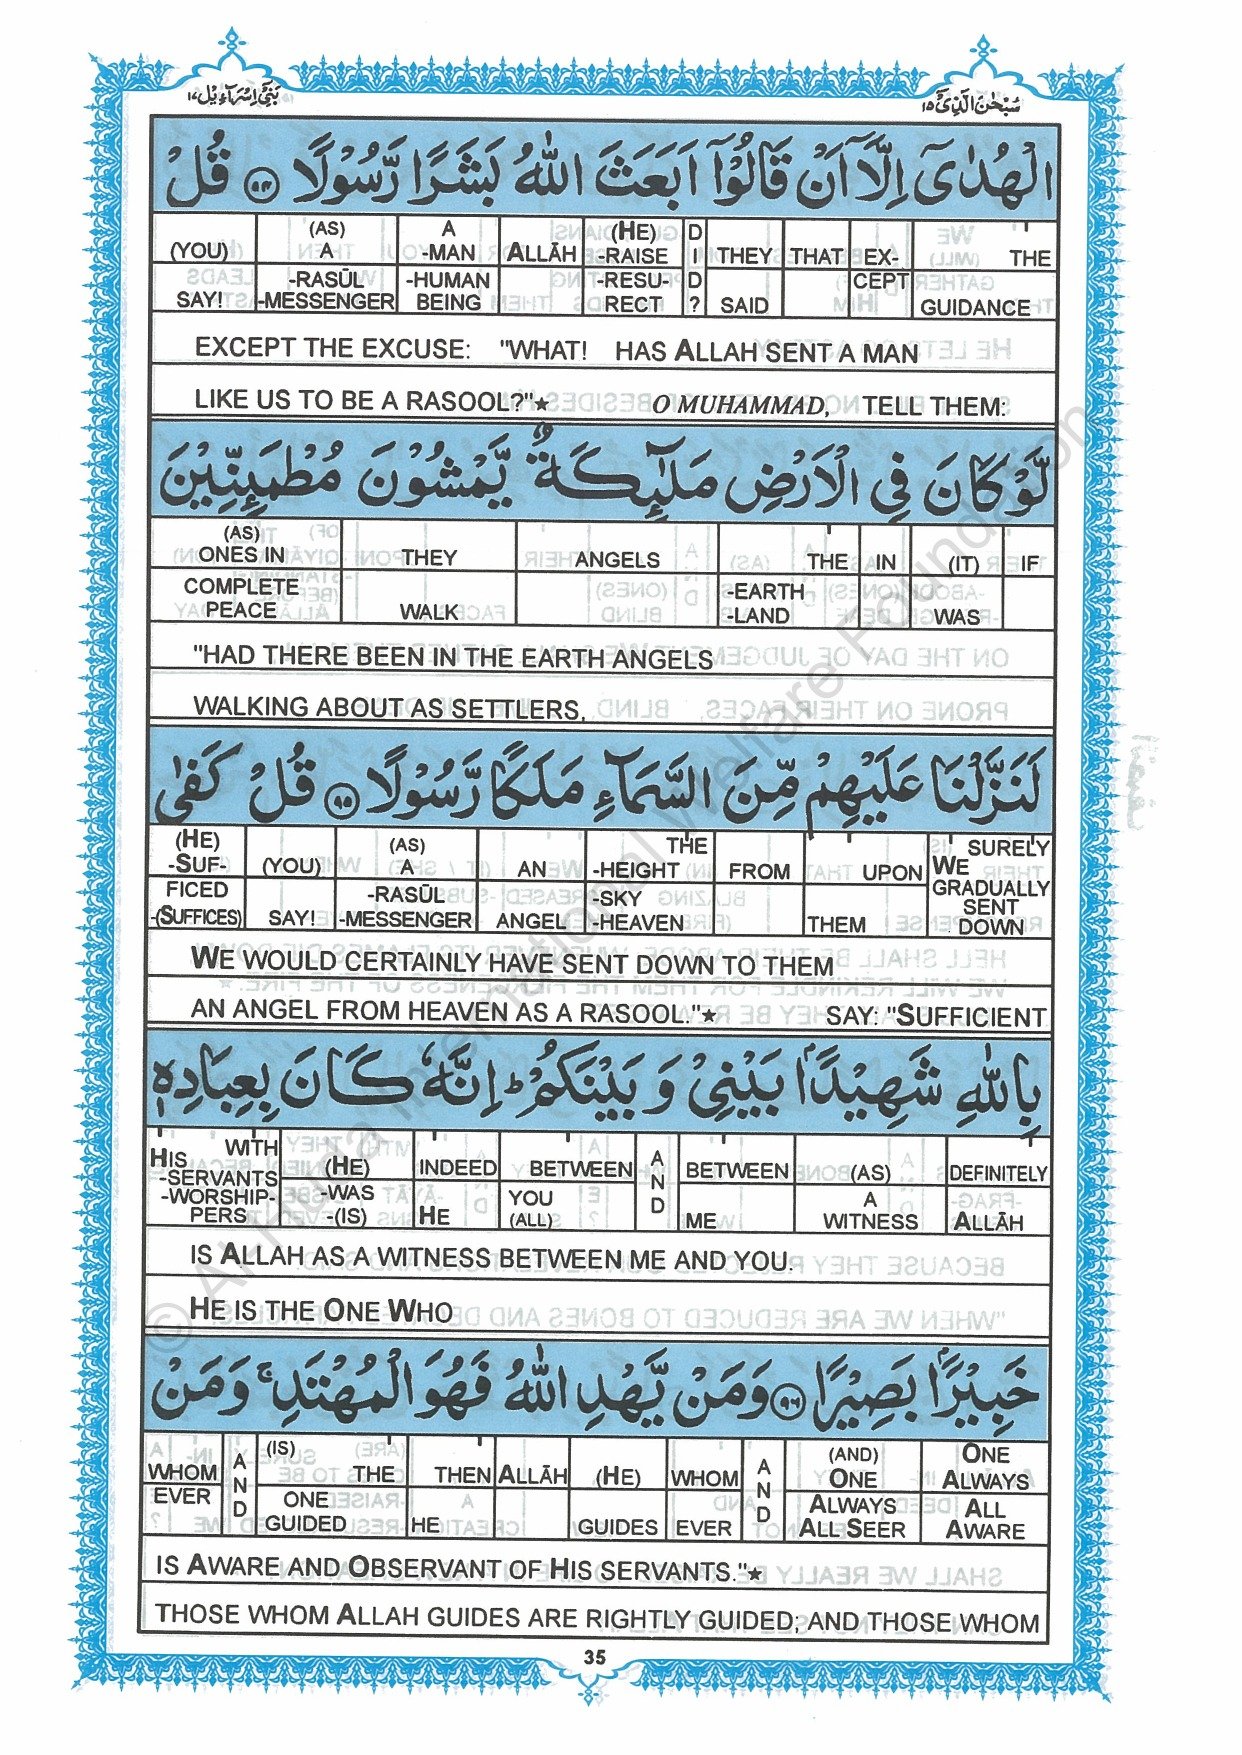 بَنِيْٓ اِسْرَآءِيْل ١٧
سُبْحٰنَ الَّذِيْٓ ١٥
الْهُدٰىٓ اِلَّآ اَنْ قَالُوْٓا اَبَعَثَ اللّٰهُ بَشَرًا رَّسُوْلًا ٩٤ قُلْ
(YOU) (AS) A A -MAN ALLĀH (HE) -RAISE DID? THEY THAT EX- THE
SAY! -RASŪL -MESSENGER -HUMAN BEING -RESU- RECT SAID CEPT GUIDANCE
EXCEPT THE EXCUSE: "WHAT! HAS ALLAH SENT A MAN
LIKE US TO BE A RASOOL?"★ O MUHAMMAD, TELL THEM:
لَّوْ كَانَ فِي الْاَرْضِ مَلٰٓئِكَةٌ يَّمْشُوْنَ مُطْمَئِنِّيْنَ
(AS) ONES IN THEY ANGELS THE IN (IT) IF
COMPLETE PEACE WALK -EARTH -LAND WAS
"HAD THERE BEEN IN THE EARTH ANGELS
WALKING ABOUT AS SETTLERS,
لَنَزَّلْنَا عَلَيْهِمْ مِّنَ السَّمَآءِ مَلَكًا رَّسُوْلًا ٩٥ قُلْ كَفٰى
(HE) -SUF- (YOU) (AS) A AN THE -HEIGHT FROM UPON SURELY WE
FICED -(SUFFICES) SAY! -RASŪL -MESSENGER ANGEL -SKY -HEAVEN THEM GRADUALLY SENT DOWN
WE WOULD CERTAINLY HAVE SENT DOWN TO THEM
AN ANGEL FROM HEAVEN AS A RASOOL."★ SAY: "SUFFICIENT
بِاللّٰهِ شَهِيْدًاۢ بَيْنِيْ وَ بَيْنَكُمْ ؕ اِنَّهٗ كَانَ بِعِبَادِهٖ
HIS WITH -SERVANTS (HE) INDEED BETWEEN AND BETWEEN (AS) DEFINITELY
-WORSHIP- PERS -WAS -(IS) HE YOU (ALL) ME A WITNESS ALLĀH
IS ALLAH AS A WITNESS BETWEEN ME AND YOU.
HE IS THE ONE WHO
خَبِيْرًاۢ بَصِيْرًا ٩٦ وَمَنْ يَّهْدِ اللّٰهُ فَهُوَ الْمُهْتَدِ ۚ وَمَنْ
WHOM AND (IS) THE THEN ALLĀH (HE) WHOM AND (AND) ONE ONE ALWAYS
EVER ONE GUIDED HE GUIDES EVER ALWAYS ALL SEER ALL AWARE
IS AWARE AND OBSERVANT OF HIS SERVANTS."★
THOSE WHOM ALLAH GUIDES ARE RIGHTLY GUIDED; AND THOSE WHOM
35
© Al-Huda International Welfare Foundation